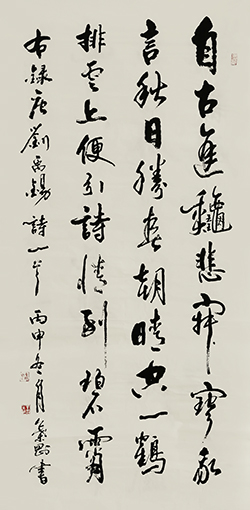 自古逢龝悲寂寥我
言秋日勝春朝晴空一鶴
排雲上便引詩情到碧霄
右錄唐劉禹錫詩一首 丙申冬月書